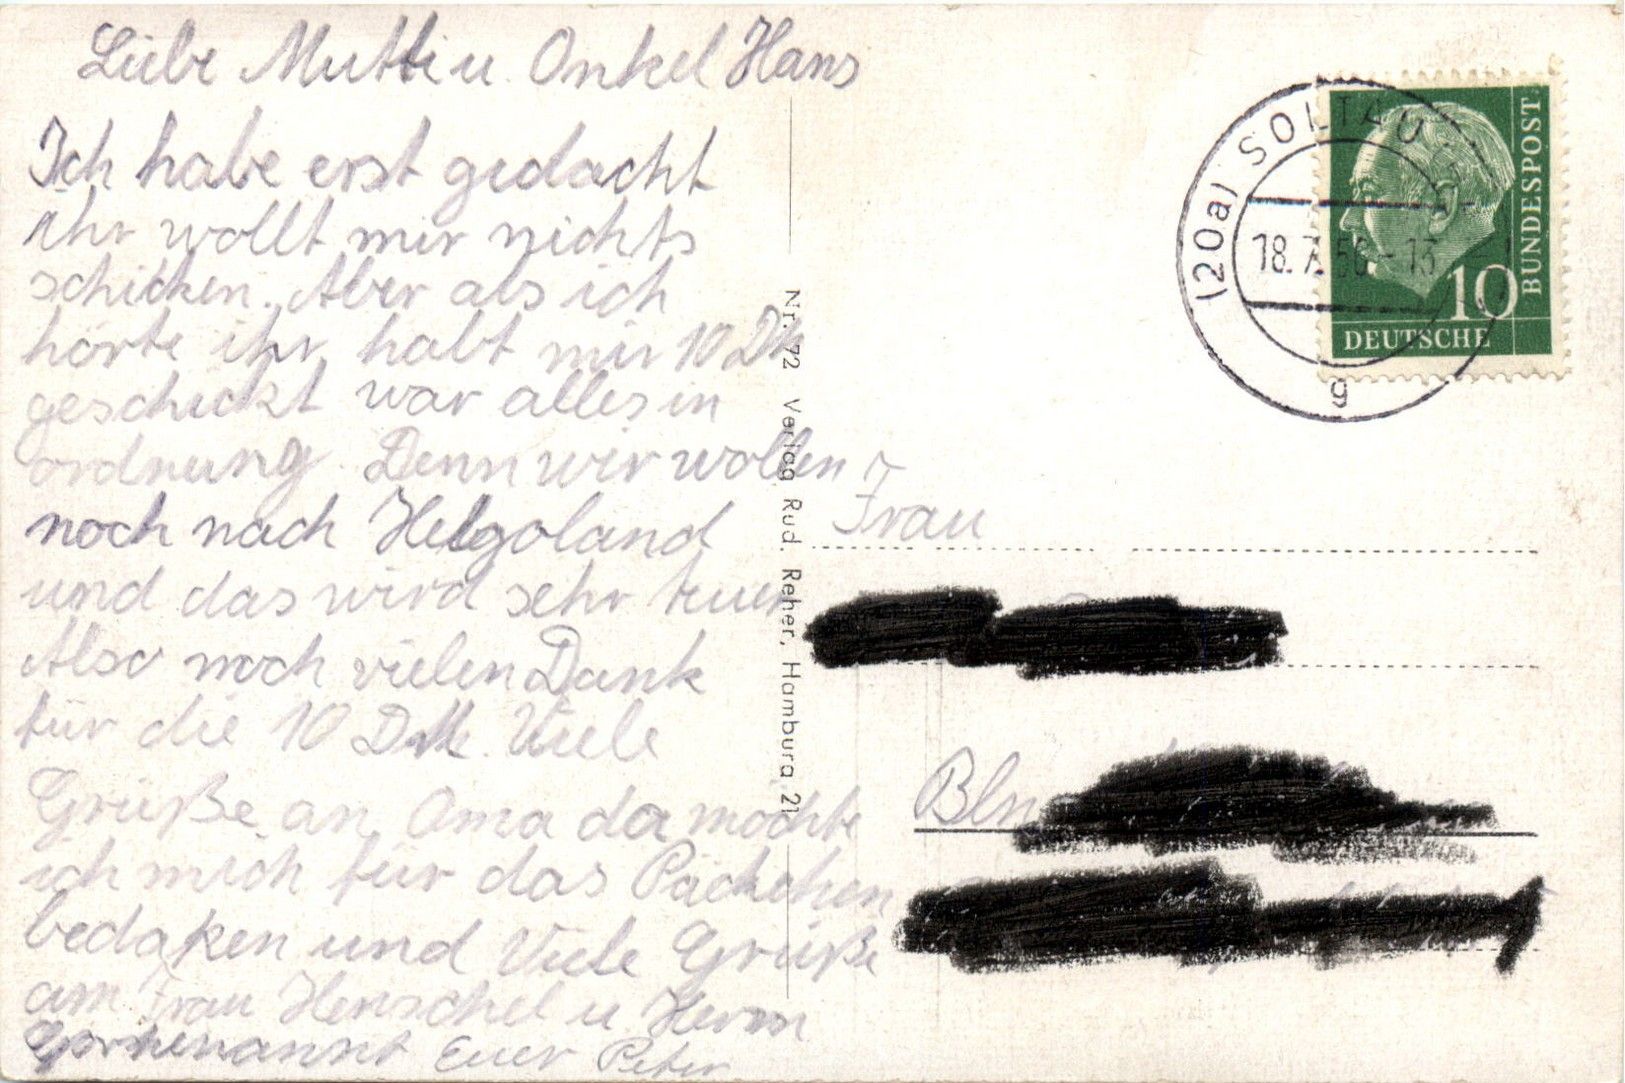 Liebe Mutti u. Onkel Hans
Ich habe erst gedacht
ihr wollt mir nichts
schicken. Aber als ich
hörte ihr habt mir 10 DM
geschickt war alles in
ordnung. Denn wir wollen
noch nach Helgoland
und das wird sehr teuer
Also noch vielen Dank
für die 10 DM. Viele
Grüße an Oma da möchte
ich mich für das Päckchen
bedaken und Viele Grüße
am Frau Henschel u Herrn
Euer Peter
Nr. 72 Verlag Rud. Reher, Hamburg 21
(20a) SOLTAU
18.7.56.-13
g
10
DEUTSCHE
BUNDESPOST
Frau
Bln